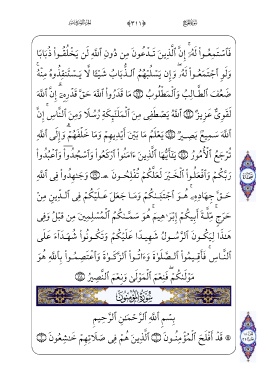 فَٱسْتَمِعُوا۟ لَهُۥٓ ۚ إِنَّ ٱلَّذِينَ تَدْعُونَ مِن دُونِ ٱللَّهِ لَن يَخْلُقُوا۟ ذُبَابًا
وَلَوِ ٱجْتَمَعُوا۟ لَهُۥ ۖ وَإِن يَسْلُبْهُمُ ٱلذُّبَابُ شَيْـًٔا لَّا يَسْتَنقِذُوهُ مِنْهُ ۚ
ضَعُفَ ٱلطَّالِبُ وَٱلْمَطْلُوبُ مَا قَدَرُوا۟ ٱللَّهَ حَقَّ قَدْرِهِۦٓ ۗ إِنَّ ٱللَّهَ
لَقَوِىٌّ عَزِيزٌ ٱللَّهُ يَصْطَفِى مِنَ ٱلْمَلَـٰٓئِكَةِ رُسُلًا وَمِنَ ٱلنَّاسِ ۚ إِنَّ
ٱللَّهَ سَمِيعٌۢ بَصِيرٌ يَعْلَمُ مَا بَيْنَ أَيْدِيهِمْ وَمَا خَلْفَهُمْ ۗ وَإِلَى ٱللَّهِ
تُرْجَعُ ٱلْأُمُورُ يَـٰٓأَيُّهَا ٱلَّذِينَ ءَامَنُوا۟ ٱرْكَعُوا۟ وَٱسْجُدُوا۟ وَٱعْبُدُوا۟
رَبَّكُمْ وَٱفْعَلُوا۟ ٱلْخَيْرَ لَعَلَّكُمْ تُفْلِحُونَ وَجَـٰهِدُوا۟ فِى ٱللَّهِ
حَقَّ جِهَادِهِۦ ۚ هُوَ ٱجْتَبَىٰكُمْ وَمَا جَعَلَ عَلَيْكُمْ فِى ٱلدِّينِ مِنْ
حَرَجٍ ۚ مِّلَّةَ أَبِيكُمْ إِبْرَٰهِيمَ ۚ هُوَ سَمَّىٰكُمُ ٱلْمُسْلِمِينَ مِن قَبْلُ وَفِى
هَـٰذَا لِيَكُونَ ٱلرَّسُولُ شَهِيدًا عَلَيْكُمْ وَتَكُونُوا۟ شُهَدَآءَ عَلَى
ٱلنَّاسِ ۚ فَأَقِيمُوا۟ ٱلصَّلَوٰةَ وَءَاتُوا۟ ٱلزَّكَوٰةَ وَٱعْتَصِمُوا۟ بِٱللَّهِ هُوَ
مَوْلَىٰكُمْ ۖ فَنِعْمَ ٱلْمَوْلَىٰ وَنِعْمَ ٱلنَّصِيرُ
سُورَةُ ٱلْمُؤْمِنُونَ
بِسْمِ ٱللَّهِ ٱلرَّحْمَـٰنِ ٱلرَّحِيمِ
قَدْ أَفْلَحَ ٱلْمُؤْمِنُونَ ٱلَّذِينَ هُمْ فِى صَلَاتِهِمْ خَـٰشِعُونَ